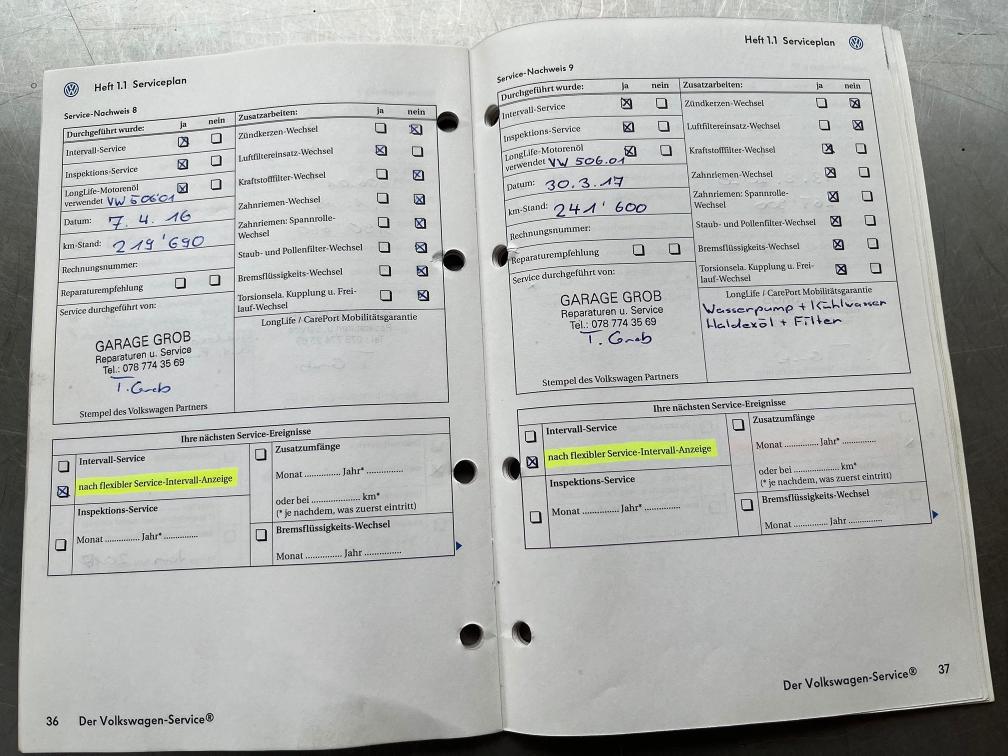 Heft 1.1 Serviceplan
Service-Nachweis 8
Durchgeführt wurde: ja nein
Intervall-Service
Inspektions-Service
LongLife-Motorenöl
verwendet VW 506 01
Datum: 7. 4. 16
km-Stand: 219'690
Rechnungsnummer:
Reparaturempfehlung
Service durchgeführt von:
GARAGE GROB
Reparaturen u. Service
Tel.: 078 774 35 69
T. Grob
Stempel des Volkswagen Partners
Zusatzarbeiten: ja nein
Zündkerzen-Wechsel
Luftfiltereinsatz-Wechsel
Kraftstofffilter-Wechsel
Zahnriemen-Wechsel
Zahnriemen: Spannrolle-
Wechsel
Staub- und Pollenfilter-Wechsel
Bremsflüssigkeits-Wechsel
Torsionsela. Kupplung u. Frei-
lauf-Wechsel
LongLife / CarePort Mobilitätsgarantie
Ihre nächsten Service-Ereignisse
Intervall-Service
nach flexibler Service-Intervall-Anzeige
Inspektions-Service
Monat .............. Jahr* ..............
Zusatzumfänge
Monat .............. Jahr* ..............
oder bei .................... km*
(* je nachdem, was zuerst eintritt)
Bremsflüssigkeits-Wechsel
Monat .............. Jahr ..............
36 Der Volkswagen-Service®
Heft 1.1 Serviceplan
Service-Nachweis 9
Durchgeführt wurde: ja nein
Intervall-Service
Inspektions-Service
LongLife-Motorenöl
verwendet VW 506.01
Datum: 30.3.17
km-Stand: 241'600
Rechnungsnummer:
Reparaturempfehlung
Service durchgeführt von:
GARAGE GROB
Reparaturen u. Service
Tel.: 078 774 35 69
T. Grob
Stempel des Volkswagen Partners
Zusatzarbeiten: ja nein
Zündkerzen-Wechsel
Luftfiltereinsatz-Wechsel
Kraftstofffilter-Wechsel
Zahnriemen-Wechsel
Zahnriemen: Spannrolle-
Wechsel
Staub- und Pollenfilter-Wechsel
Bremsflüssigkeits-Wechsel
Torsionsela. Kupplung u. Frei-
lauf-Wechsel
LongLife / CarePort Mobilitätsgarantie
Wasserpump + Kühlwasser
Haldexöl + Filter
Ihre nächsten Service-Ereignisse
Intervall-Service
nach flexibler Service-Intervall-Anzeige
Inspektions-Service
Monat .............. Jahr* ..............
Zusatzumfänge
Monat .............. Jahr* ..............
oder bei .................... km*
(* je nachdem, was zuerst eintritt)
Bremsflüssigkeits-Wechsel
Monat .............. Jahr ..............
Der Volkswagen-Service® 37